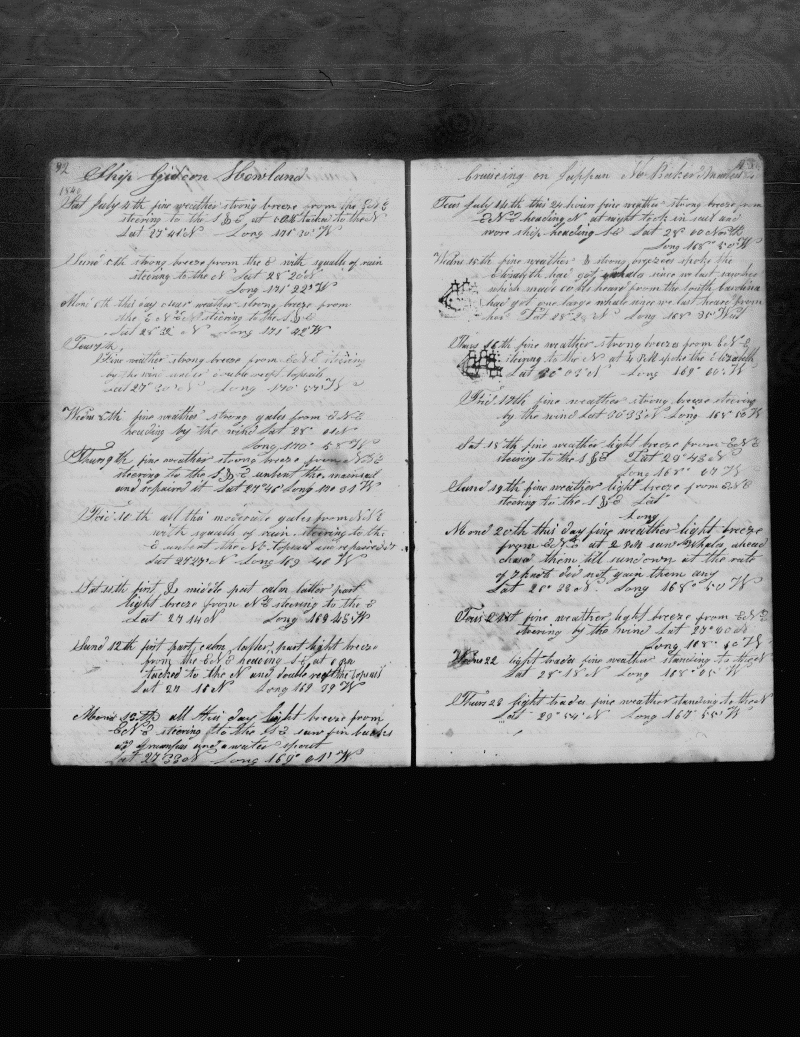 92
Ship Gideon Howland
1840
Sat July 4th fine weather strong breeze from the
steering to the S & E at tacked to the N
Lat 27° 41 N Long 171° 10' W
Sund 5th strong breeze from the E with squalls of rain
steering to the N Lat 28° 20 N
Long 171° 22' W
Mon 6th this day clear weather strong breze from
the E N E steering to the S &
Lat 28° 32 N Long 171° 42 W
Tues 7th
fine weather strong breeze from E N E steering
by the wind under double reeft topsails
Lat 27° 30 N Long 170° 57 W
Wedn 8th fine weather strong gales from E N E
heading by the wind Lat 28° N
Long 170° 58 W
Thurs 9th fine weather strong breeze from
steering to the S & E unbent the mainsail
and repaired it Lat 27° 46 Long 170 31 W
Frid 10th all this moderate gales from N N E
with squalls of rain steering to the
E unbent the topsail and repaired it
Lat N Long 169 40 W
Sat 11th first & middle part calm latter part
light breeze from N E steering to the E
Lat 27 14 N Long 169 45 W
Sund 12th first part calm latter part light breeze
from the E N E heading S E at
tacked to the N and double reeft the topsails
Lat 27 15 N Long 169 W
Mond 13th all this day light breeze from
E N E steering to the saw fin backs
and a water spout
Lat 27° 33 N Long 169° 01' W
93
Cruiseing on Jappan No
Tues July 14th this 24 hours fine weather strong breeze from
E N E heading N at night took in sail and
wore ship heading Lat 28 00 North
Long 168° 50' W
Wedns 15th fine weather & strong breezes spoke the
Elizabeth had got whale since we last spoke her
which made heard from the South Carolina
had got one large whale since we last heard from
her Lat 28° N Long 168° West
Thurs 16th fine weather strong breeze from E N E
steering to the N at 4 P M spoke the Elizabeth
Lat 30° 05 N Long 169° 00' W
Frid 17th fine weather strong breze steering
by the wind Lat 30 33 N Long 168° 50 W
Sat 18th fine weather light breeze from E N E
steering to the S & E Lat 29° 43 N
Long 168° 07 W
Sund 19th fine weather light breeze from E N E
steering to the S & E Lat
Long
Mond 20th this day fine weather light breeze
from E N E at 2 P M saw Whales ahead
chasd them till sundown at the rate
of 7 knots did not gain them any
Lat 28° 38 N Long 168° 50' W
Tues 21st fine weather light breeze from E N E
steering by the wind Lat 27° 00 N
Long 168° W
Wedns 22 light trades fine weather standing to the N
Lat 28° 18 N Long 168° 05' W
Thurs 23 light trades fine weather standing to the N
Lat 29° 54 N Long 167° 55' W